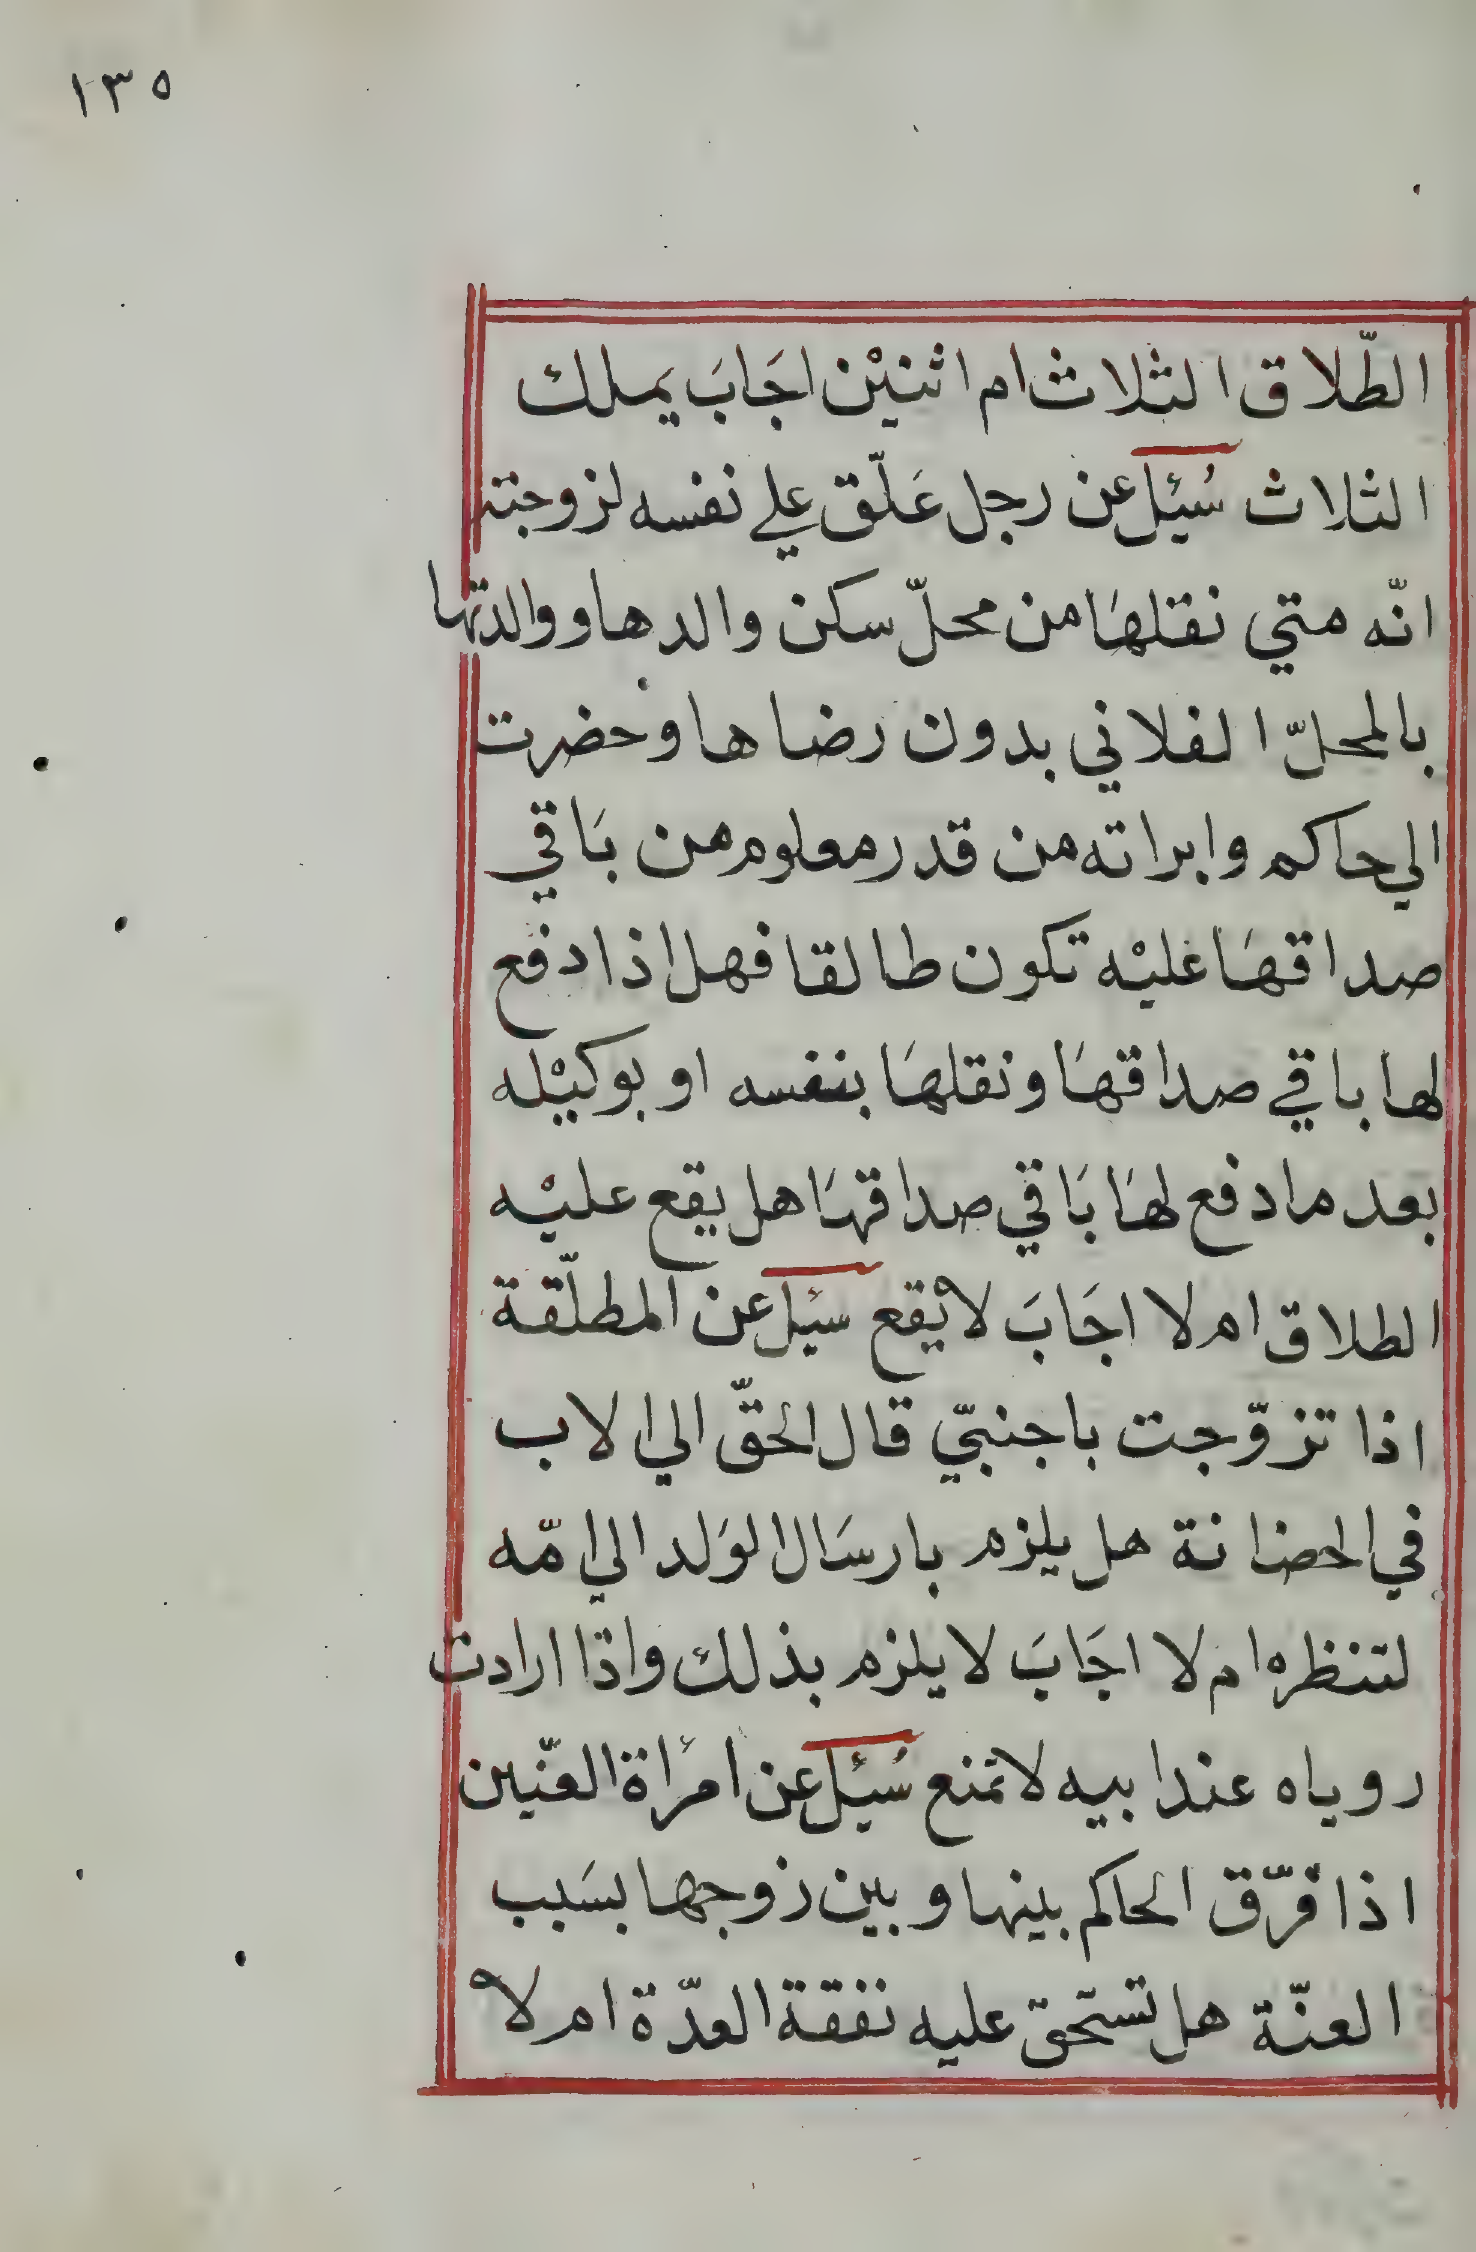 ١٣٥
الطّلاق الثلاث ام اثنيْن اجَابَ يملك
الثلاث سُئِل عن رجل عَلّق علي نفسه لزوجته
انّه متي نقلهَا من محلّ سكن والدها ووالدتها
بالمحلّ الفلاني بدون رضاها وحضرت
الي حاكم وابراته من قدر معلوم من بَاقي
صداقهَا عليْه تكون طالقا فهل اذا دفع
لها باقي صداقهَا ونقلهَا بنفسه او بوكيْله
بعد ما دفع لهَا بَاقي صداقهَا هل يقع عليْه
الطلاق ام لا اجَابَ لا يقع سئل عن المطلّقة
اذا تزوّجت باجنبيّ قال الحقّ الي الاب
في الحضانة هل يلزم بارسَال الوَلد الي امّه
لتنظره ام لا اجَابَ لا يلزم بذلك واذا ارادت
روياه عند ابيه لا تمنع سُئِل عن امرأة العنّين
اذا فرّق الحاكم بينها وبين زوجها بسَبب
العنّة هل تستحقّ عليه نفقة العدّة ام لا